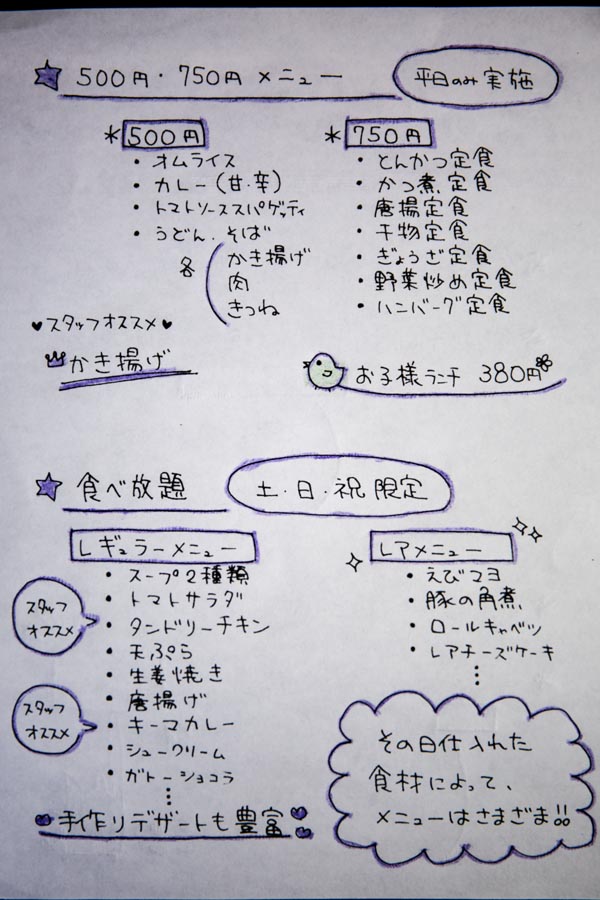 500円・750円 メニュー
平日のみ実施
*500円
・オムライス
・カレー(甘・辛)
・トマトソーススパゲッティ
・うどん・そば
各
かき揚げ
肉
きつね
*750円
・とんかつ定食
・かつ煮定食
・唐揚定食
・干物定食
・ぎょうざ定食
・野菜炒め定食
・ハンバーグ定食
♥スタッフオススメ♥
かき揚げ
お子様ランチ 380円
食べ放題
土・日・祝 限定
レギュラーメニュー
・スープ2種類
・トマトサラダ
・タンドリーチキン
・天ぷら
・生姜焼き
・唐揚げ
・キーマカレー
・シュークリーム
・ガトーショコラ
⋮
スタッフ
オススメ
スタッフ
オススメ
手作りデザートも豊富
レアメニュー
・えびマヨ
・豚の角煮
・ロールキャベツ
・レアチーズケーキ
⋮
その日仕入れた
食材によって、
メニューはさまざま!!